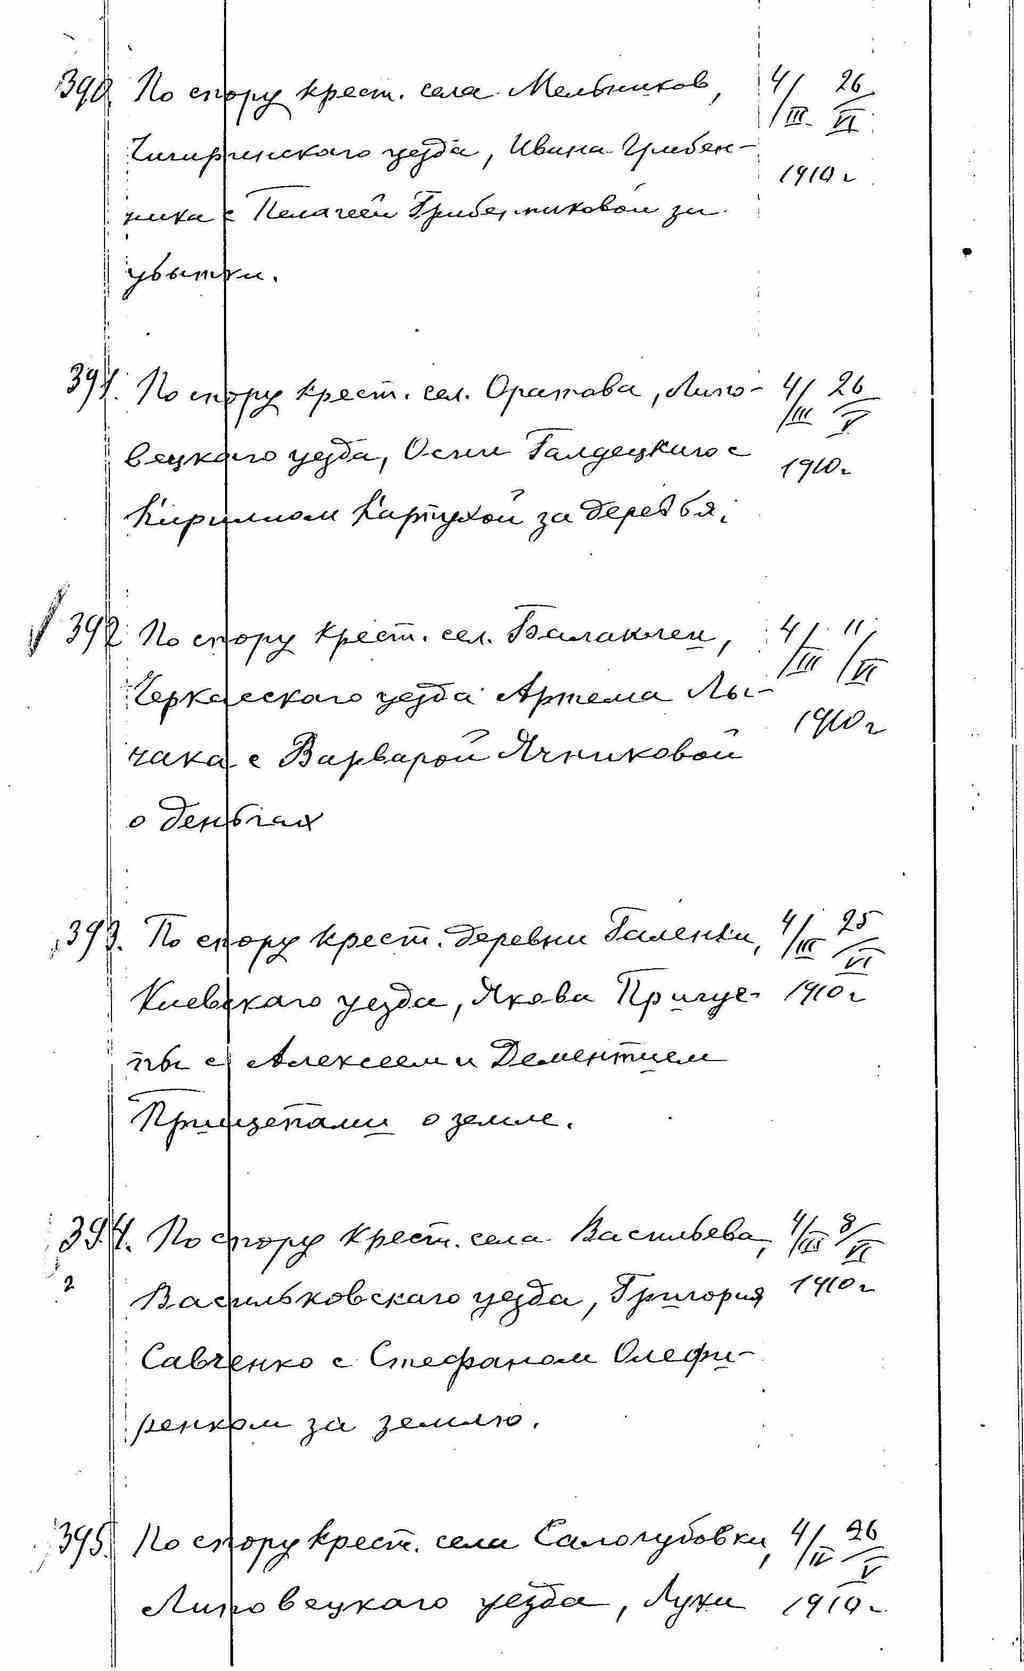 390. По спору крест. села Мельников, 4/III 26/VI
Чигиринского уезда, Ивана Грибен- 1910 г
ника с Пелагеей Грибенниковой за
убытки.
391. По спору крест. сел. Оратова, Липо- 4/III 26/V
вецкаго уезда, Осии Галдецкаго с 1910 г
Кириллом Картухой за деревья.
392 По спору крест. сел. Балаклеи, 4/III 11/VI
Черкасского уезда Артема Лы- 1910 г
чака с Варварой Ячниковой
о деньгах
393. По спору крест. деревни Галенки, 4/III 25/VI
Киевскаго уезда, Якова Прище- 1910 г
пы с Алексеем и Дементием
Прищепами о земле.
394. По спору крест. села Васильева, 4/III 8/VI
2 Васильковскаго уезда, Григория 1910 г
Савченко с Стефаном Олефи-
ренком за землю.
395. По спору крест. села Сологубовки, 4/IV 26/V
Липовецкаго уезда, Луки 1910 г